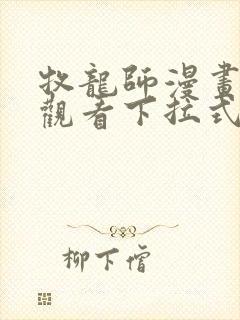 牧龍師漫畫
觀看下拉式
柳下僧